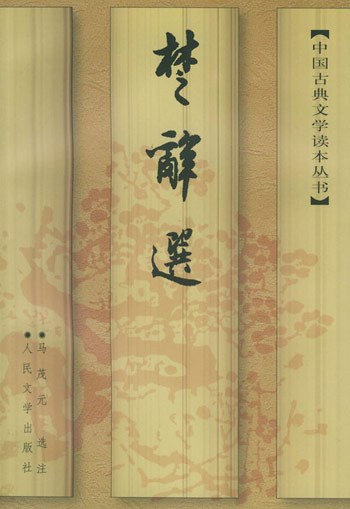 【中国古典文学读本丛书】
楚辭選
马茂元 选注
人民文学出版社